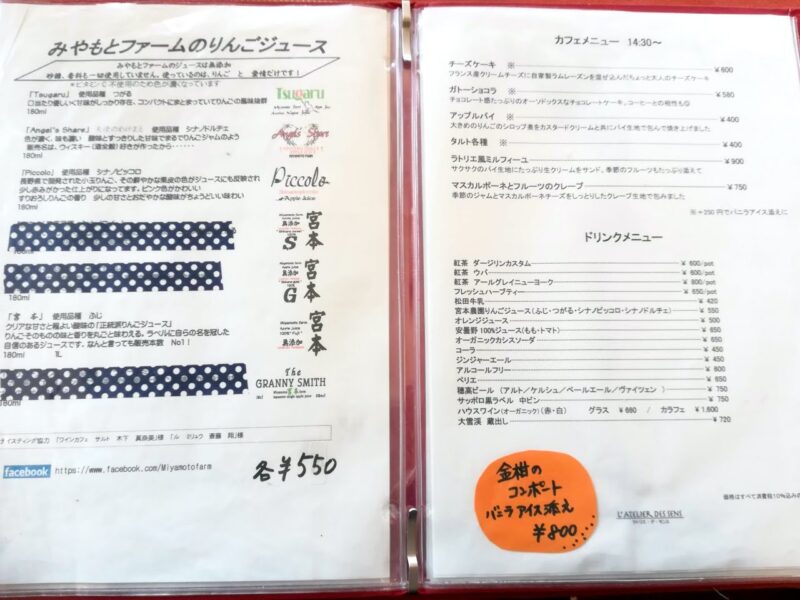 みやもとファームのりんごジュース
みやもとファームのジュースは無添加
砂糖、香料も一切使用していません。使っているのは、りんご と 愛情だけです！
*ビタミンC不使用のため色が濃くなっています
「Tsugaru」 使用品種 つがる
口当たり優しいく甘味がしっかり存在、コンパクトにまとまっていてりんごの風味抜群
180ml
Tsugaru
「Angel's Share」 使用品種 シナノドルチェ
色が濃く、味も濃い 酸味とすっきりした甘味でまるでりんごジャムのよう
販売名は、ウィスキー（適全般）好きが作ったから・・・・・
180ml
Angel's Share
「Piccolo」 使用品種 シナノピッコロ
長野県で開発された小玉りんご、その鮮やかな果皮の色がジュースにも反映され
少し赤みがかった仕上がりになってます。ピンク色がかわいい
すりおろしりんごの香り 少しの甘さとおだやかな酸味がちょうどいい味わい
180ml
Piccolo
Apple Juice
無添加
宮本
S
180ml
無添加
宮本
G
180ml
「宮 本」 使用品種 ふじ
クリアな甘さと程よい酸味の「正統派りんごジュース」
りんごそのものの味と香りを丸ごと味わえる。ラベルに自らの名を冠した
自信のあるジュースです。なんと言っても販売本数 No1！
180ml 1L
無添加
宮本
The
GRANNY SMITH
180ml
テイスティング協力 「ワインカフェ サルト 木下 真奈美」様 「ル ミリュウ 斎藤 翔」様
facebook https://www.facebook.com/Miyamotofarm
各¥550
カフェメニュー 14:30～
チーズケーキ ※ ¥600
フランス産クリームチーズに自家製ラムレーズンを混ぜ込んだちょっと大人のチーズケーキ
ガトーショコラ ※ ¥580
チョコレート感たっぷりのオーソドックスなチョコレートケーキ。コーヒーとの相性も◎
アップルパイ ※ ¥400
大きめのりんごのシロップ煮をカスタードクリームと共にパイ生地で包んで焼き上げました
タルト各種 ※ ¥400
ラトリエ風ミルフィーユ ¥900
サクサクのパイ生地にたっぷり生クリームをサンド、季節のフルーツもたっぷり添えて
マスカルポーネとフルーツのクレープ ¥750
季節のジャムとマスカルポーネチーズをしっとりしたクレープ生地で包みました
※+250円でバニラアイス添えに
ドリンクメニュー
紅茶 ダージリンカスタム ¥600/pot
紅茶 ウバ ¥600/pot
紅茶 アールグレイニューヨーク ¥600/pot
フレッシュハーブティー ¥650/pot
松田牛乳 ¥420
宮本農園りんごジュース(ふじ・つがる・シナノピッコロ・シナノドルチェ) ¥550
オレンジジュース ¥500
安曇野100%ジュース(もも・トマト) ¥650
オーガニックカシスソーダ ¥650
コーラ ¥450
ジンジャーエール ¥450
アルコールフリー ¥600
ペリエ ¥650
穂高ビール（アルト／ケルシュ／ペールエール／ヴァイツェン ） ¥750
サッポロ黒ラベル 中ビン ¥750
ハウスワイン(オーガニック)(赤・白) グラス ¥660 / カラフェ ¥1,600
大雪渓 蔵出し ¥720
金柑の
コンポート
バニラアイス添え
¥800
価格はすべて消費税10%込みの
L'ATELIER DES SENS
ラトリエ・デ・サンス